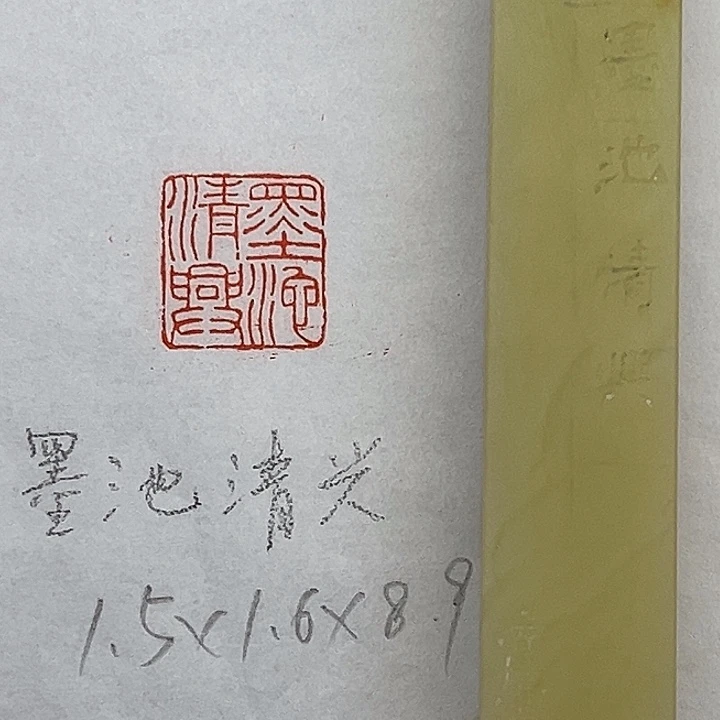 墨池
清興
墨池清兴
1.5×1.6×8.9
墨池清興